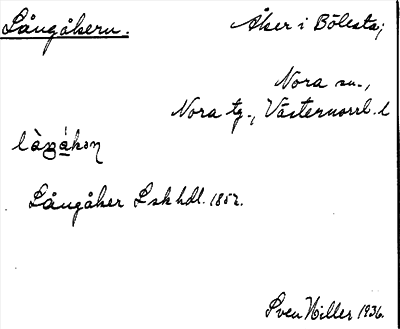 Långåkern.
Åker i Bölesta;
Nora sn.,
Nora tg., Västernorrl. l
Långåker Lskhdl. 1852.
Sven Hiller 1936.